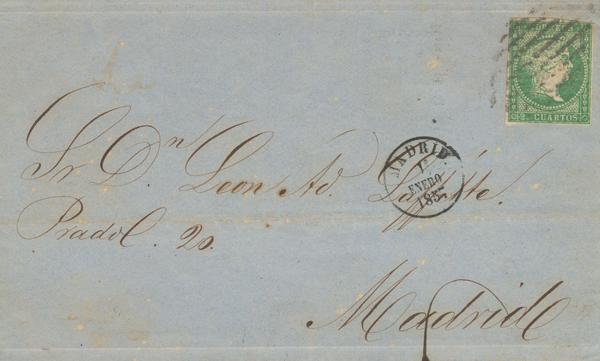 2 CUARTOS
MADRID
1º
ENERO
1857
Sr. Dn. Leon Ad. Laffitte.
Prado. 20.
Madrid